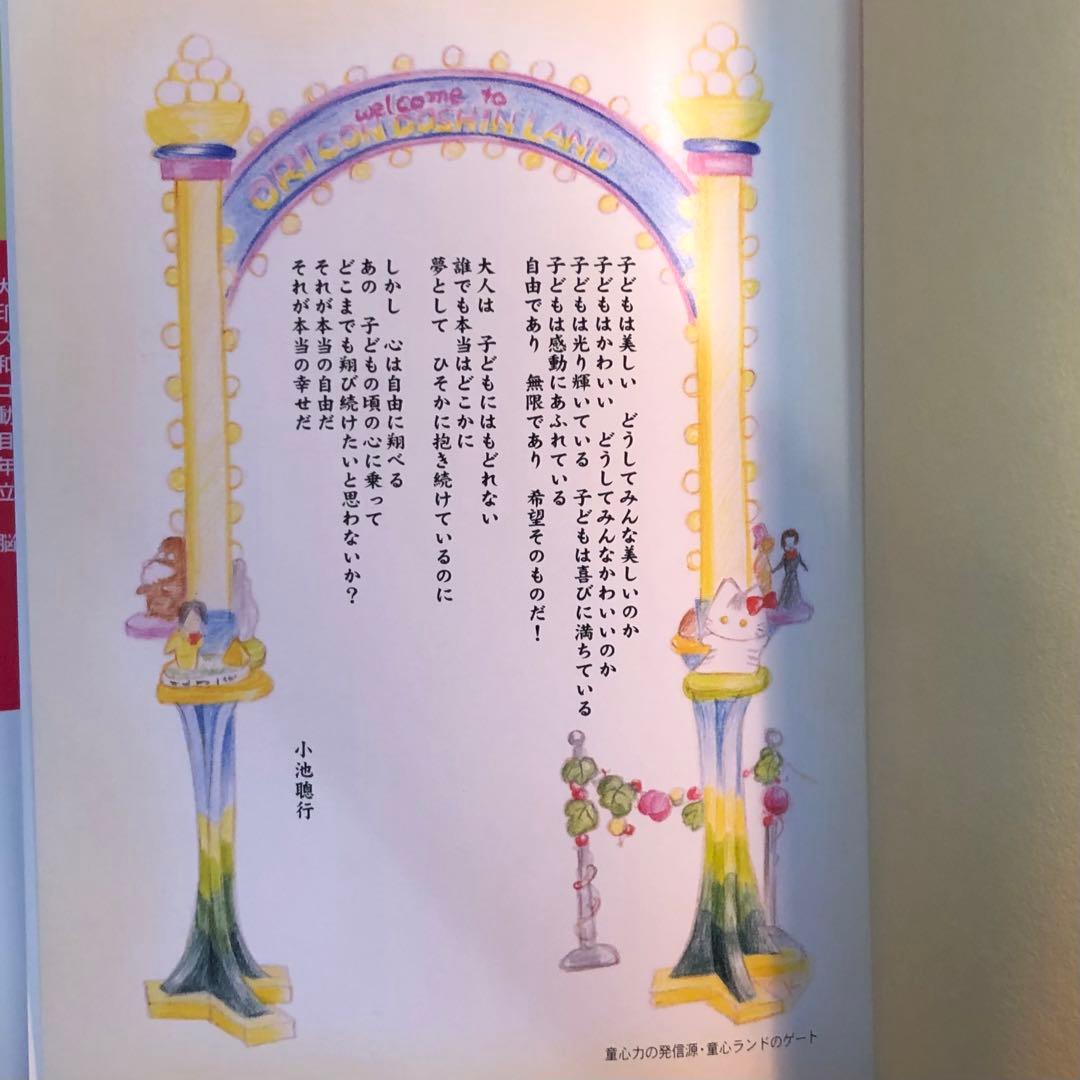 welcome to
ORICON DOSHIN LAND
子どもは美しい　どうしてみんな美しいのか
子どもはかわいい　どうしてみんなかわいいのか
子どもは光り輝いている　子どもは喜びに満ちている
子どもは感動にあふれている
自由であり　無限であり　希望そのものだ！
大人は　子どもにはもどれない
誰でも本当はどこかに
夢として　ひそかに抱き続けているのに
しかし　心は自由に翔べる
あの　子どもの頃の心に乗って
どこまでも翔び続けたいと思わないか？
それが本当の自由だ
それが本当の幸せだ
小池聰行
童心力の発信源・童心ランドのゲート